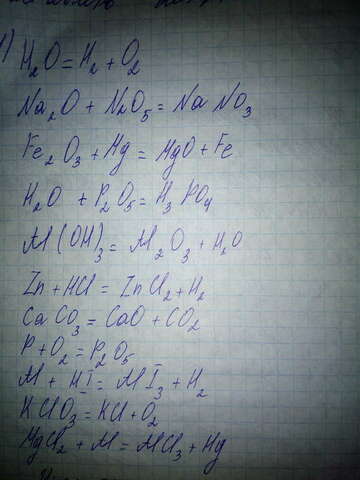 1)
H₂O = H₂ + O₂
Na₂O + N₂O₅ = NaNO₃
Fe₂O₃ + Mg = MgO + Fe
H₂O + P₂O₅ = H₃PO₄
Al(OH)₃ = Al₂O₃ + H₂O
Zn + HCl = ZnCl₂ + H₂
CaCO₃ = CaO + CO₂
P + O₂ = P₂O₅
Al + HI = AlI₃ + H₂
KClO₃ = KCl + O₂
MgCl₂ + Al = AlCl₃ + Mg